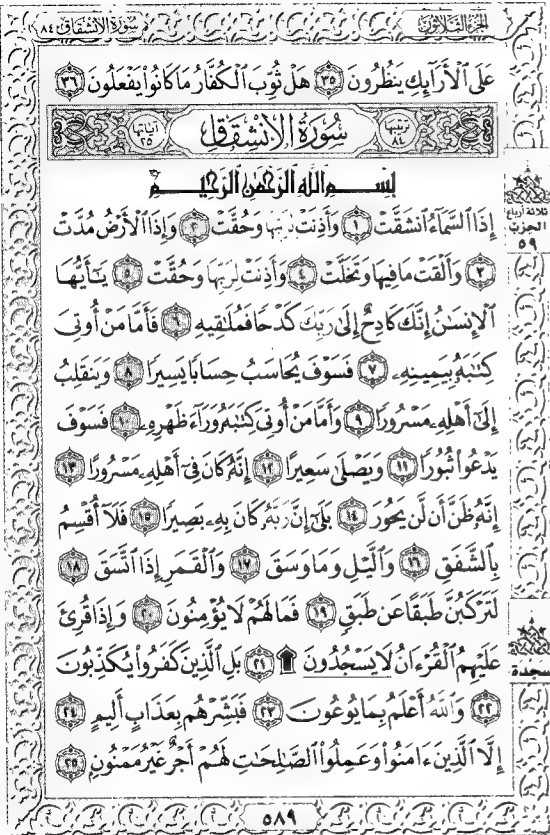 الجزء الثلاثون سورة الانشقاق ٨٤
عَلَى ٱلْأَرَآئِكِ يَنظُرُونَ ٣٥ هَلْ ثُوِّبَ ٱلْكُفَّارُ مَا كَانُوا۟ يَفْعَلُونَ ٣٦
ترتيبها ٨٤ سُورَةُ الانْشِقَاقِ آياتها ٢٥
بِسْمِ ٱللَّهِ ٱلرَّحْمَٰنِ ٱلرَّحِيمِ
إِذَا ٱلسَّمَآءُ ٱنشَقَّتْ ١ وَأَذِنَتْ لِرَبِّهَا وَحُقَّتْ ٢ وَإِذَا ٱلْأَرْضُ مُدَّتْ
٣ وَأَلْقَتْ مَا فِيهَا وَتَخَلَّتْ ٤ وَأَذِنَتْ لِرَبِّهَا وَحُقَّتْ ٥ يَٰٓأَيُّهَا
ٱلْإِنسَٰنُ إِنَّكَ كَادِحٌ إِلَىٰ رَبِّكَ كَدْحًا فَمُلَٰقِيهِ ٦ فَأَمَّا مَنْ أُوتِىَ
كِتَٰبَهُۥ بِيَمِينِهِۦ ٧ فَسَوْفَ يُحَاسَبُ حِسَابًا يَسِيرًا ٨ وَيَنقَلِبُ
إِلَىٰٓ أَهْلِهِۦ مَسْرُورًا ٩ وَأَمَّا مَنْ أُوتِىَ كِتَٰبَهُۥ وَرَآءَ ظَهْرِهِۦ ١٠ فَسَوْفَ
يَدْعُوا۟ ثُبُورًا ١١ وَيَصْلَىٰ سَعِيرًا ١٢ إِنَّهُۥ كَانَ فِىٓ أَهْلِهِۦ مَسْرُورًا ١٣
إِنَّهُۥ ظَنَّ أَن لَّن يَحُورَ ١٤ بَلَىٰٓ إِنَّ رَبَّهُۥ كَانَ بِهِۦ بَصِيرًا ١٥ فَلَآ أُقْسِمُ
بِٱلشَّفَقِ ١٦ وَٱلَّيْلِ وَمَا وَسَقَ ١٧ وَٱلْقَمَرِ إِذَا ٱتَّسَقَ ١٨
لَتَرْكَبُنَّ طَبَقًا عَن طَبَقٍ ١٩ فَمَا لَهُمْ لَا يُؤْمِنُونَ ٢٠ وَإِذَا قُرِئَ
عَلَيْهِمُ ٱلْقُرْءَانُ لَا يَسْجُدُونَ ۩ ٢١ بَلِ ٱلَّذِينَ كَفَرُوا۟ يُكَذِّبُونَ
٢٢ وَٱللَّهُ أَعْلَمُ بِمَا يُوعُونَ ٢٣ فَبَشِّرْهُم بِعَذَابٍ أَلِيمٍ ٢٤
إِلَّا ٱلَّذِينَ ءَامَنُوا۟ وَعَمِلُوا۟ ٱلصَّٰلِحَٰتِ لَهُمْ أَجْرٌ غَيْرُ مَمْنُونٍۭ ٢٥
ثلاثة أرباع
الحزب
٥٩
سجدة
٥٨٩